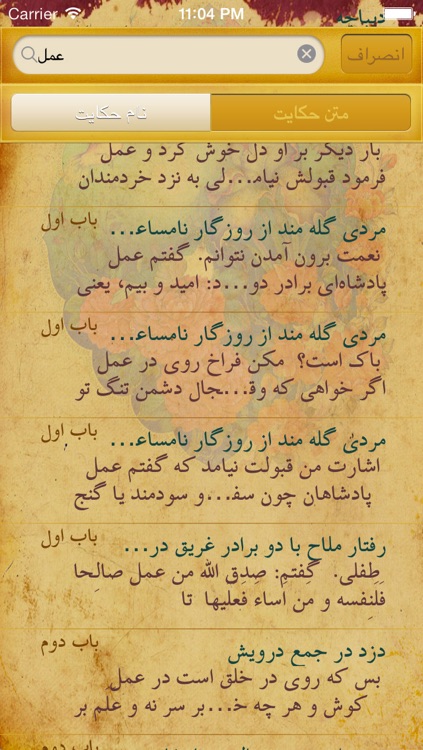 Carrier 11:04 PM
دیباچه
عمل
انصراف
نام حکایت
متن حکایت
بار دیگر بر او دل خوش کرد و عمل
فرمود قبولش نیام...لی به نزد خردمندان
مردی گله مند از روزگار نامساعـ...
باب اول
نعمت برون آمدن نتوانم. گفتم عمل
پادشاه‌ای برادر دو...د: امید و بیم، یعنی
مردی گله مند از روزگار نامساعـ...
باب اول
باک است؟ مکن فراخ روی در عمل
اگر خواهی که وقـ...ـجال دشمن تنگ تو
مردی گله مند از روزگار نامساعـ...
باب اول
اشارت من قبولت نیامد که گفتم عمل
پادشاهان چون سفـ...و سودمند یا گنج
رفتار ملاح با دو برادر غریق در...
باب اول
طفلی. گفتم: صدق الله من عمل صالحا
فلنفسه و من أساء فعلیها تا
دزد در جمع درویش
باب دوم
بس که روی در خلق است در عمل
کوش و هر چه خـ...بر سر نه و علم بر
باب دوم